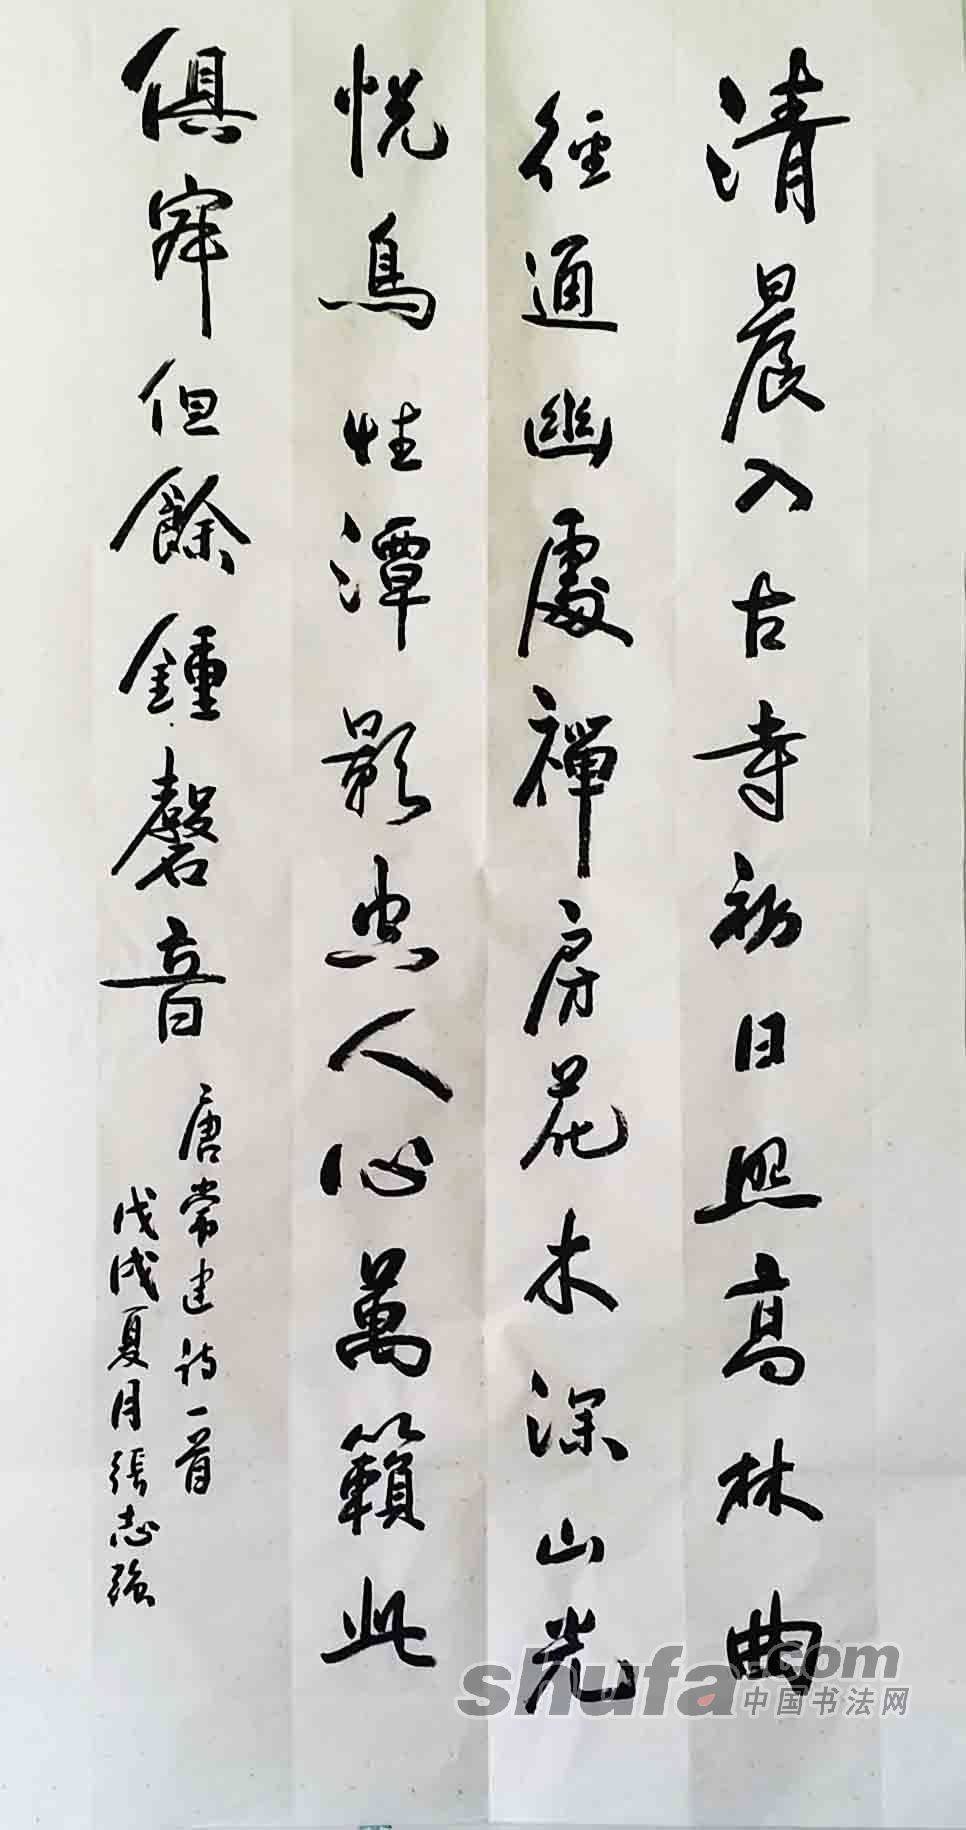 清晨入古寺初日照高林曲
徑通幽處禪房花木深山光
悦鳥性潭影空人心萬籟此
俱寂但餘鍾磬音
唐常建诗一首
戊戌夏月張志强
shufa.com
中国书法网